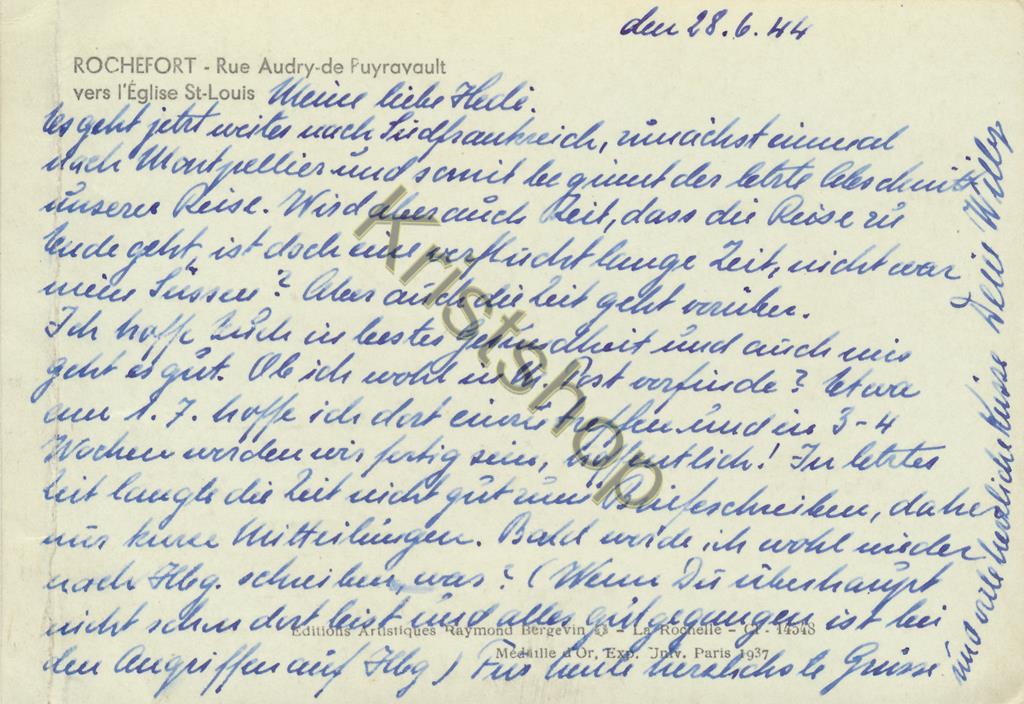 den 28.6.44
ROCHEFORT - Rue Audry-de Puyravault
vers l'Église St-Louis
Meine liebe Hedi.
Es geht jetzt weiter nach Südfrankreich, zunächst einmal
nach Montpellier und somit beginnt der letzte Abschnitt
unserer Reise. Wird aber auch Zeit, dass die Reise zu
Ende geht, ist doch eine verflucht lange Zeit, nicht war
mein Süsses? Aber auch die Zeit geht vorüber.
Ich hoffe Euch in bester Gesundheit und auch mir
geht es gut. Ob ich wohl in M. Post vorfinde? Etwa
am 1. 7. hoffe ich dort einzutreffen und in 3-4
Wochen werden wir fertig sein, hoffentlich! In letzter
Zeit langte die Zeit nicht gut zum Briefeschreiben, daher
nur kurze Mitteilungen. Bald werde ich wohl wieder
nach Hbg. schreiben, was? (Wenn Du überhaupt
nicht schon dort bist und alles gut gegangen ist bei
den Angriffen auf Hbg.) Für heute herzlichste Grüsse
und viele herzliche Küsse Dein Willy
Editions Artistiques Raymond Bergevin - La Rochelle - Cl. 14548
Médaille d'Or, Exp. Inv. Paris 1937
Kristshop